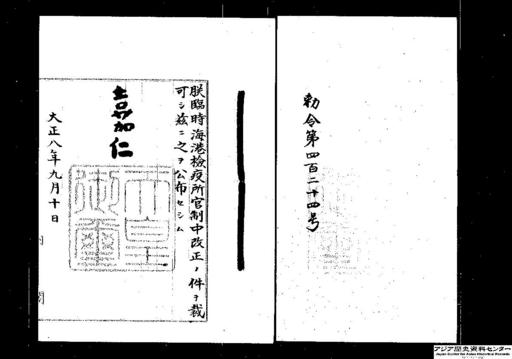 勅令第四百二十四号
朕臨時海港検疫所官制中改正ノ件ヲ裁
可シ茲ニ之ヲ公布セシム
嘉仁
天皇御璽
大正八年九月十日
内閣
アジア歴史資料センター
Japan Center for Asian Historical Records